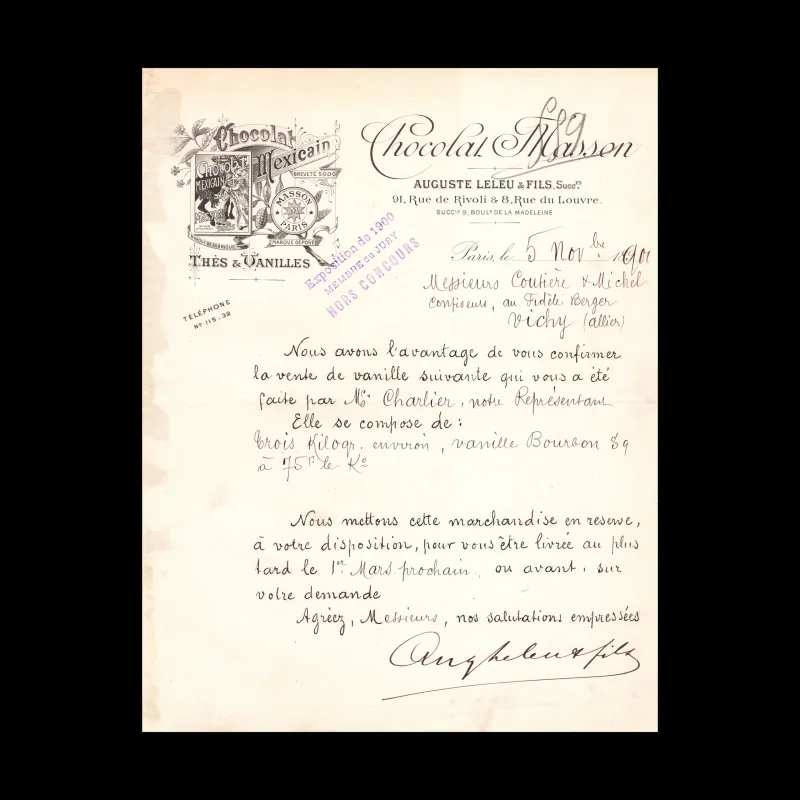 Chocolat
Mexicain
BREVETÉ S.G.D.G.
CHOCOLAT
MEXICAIN
MASSON
PARIS
MARQUE DÉPOSÉE
THÉS & VANILLES
TÉLÉPHONE
Nº 115.39
Exposition de 1900
MEMBRE du JURY
HORS CONCOURS
Chocolat Masson
AUGUSTE LELEU & FILS, Succrs
91, Rue de Rivoli & 8, Rue du Louvre.
SUCCle 9, BOULd DE LA MADELEINE
Paris, le 5 Novbe 1901
Messieurs Coutière & Michel
Confiseurs, au Fidèle Berger
Vichy (allier)
Nous avons l'avantage de vous confirmer
la vente de vanille suivante qui vous a été
faite par Mr Charlier, notre Représentant
Elle se compose de :
Trois Kilogr. environ, vanille Bourbon
à 75F le Ko
Nous mettons cette marchandise en reserve,
à votre disposition, pour vous être livrée au plus
tard le 1er Mars prochain, ou avant, sur
votre demande
Agréez, Messieurs, nos salutations empressées
Aug Leleu & fils